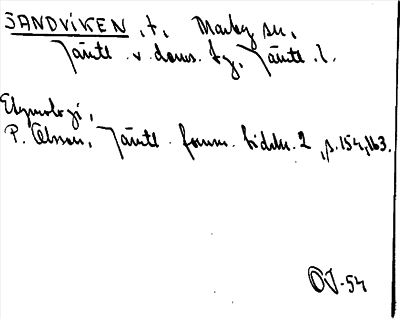 SANDVIKEN, t., Marby sn,
Jämtl. v. doms. tg, Jämtl. l.
Etymologi,
P. Olsson, Jämtl. fornm. tidskr. 2, s. 154, 163.
OJ-54